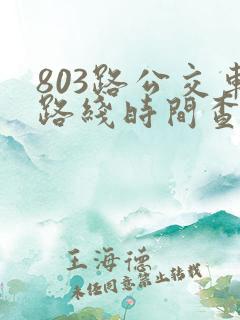 803路公交車
路綫時間查
王海德
未经同意禁止转载